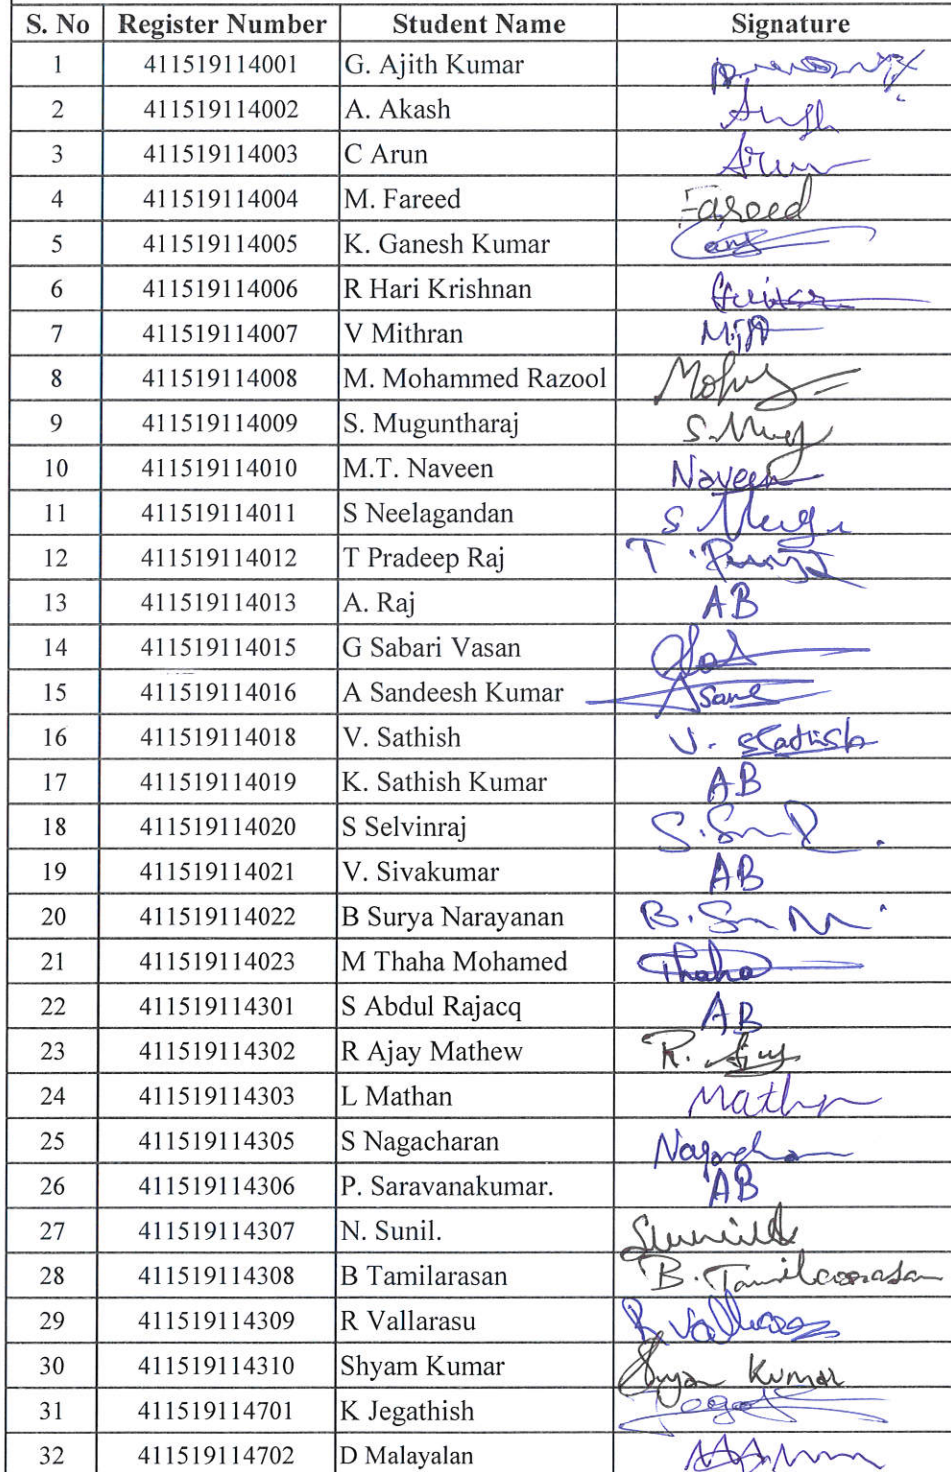 S. No Register Number Student Name Signature
1 411519114001 G. Ajith Kumar
2 411519114002 A. Akash
3 411519114003 C Arun Arun
4 411519114004 M. Fareed Fareed
5 411519114005 K. Ganesh Kumar
6 411519114006 R Hari Krishnan
7 411519114007 V Mithran
8 411519114008 M. Mohammed Razool
9 411519114009 S. Muguntharaj
10 411519114010 M.T. Naveen Naveen
11 411519114011 S Neelagandan
12 411519114012 T Pradeep Raj
13 411519114013 A. Raj AB
14 411519114015 G Sabari Vasan
15 411519114016 A Sandeesh Kumar
16 411519114018 V. Sathish
17 411519114019 K. Sathish Kumar AB
18 411519114020 S Selvinraj
19 411519114021 V. Sivakumar AB
20 411519114022 B Surya Narayanan
21 411519114023 M Thaha Mohamed Thaha
22 411519114301 S Abdul Rajacq AB
23 411519114302 R Ajay Mathew
24 411519114303 L Mathan
25 411519114305 S Nagacharan
26 411519114306 P. Saravanakumar. AB
27 411519114307 N. Sunil.
28 411519114308 B Tamilarasan
29 411519114309 R Vallarasu
30 411519114310 Shyam Kumar Kumar
31 411519114701 K Jegathish
32 411519114702 D Malayalan